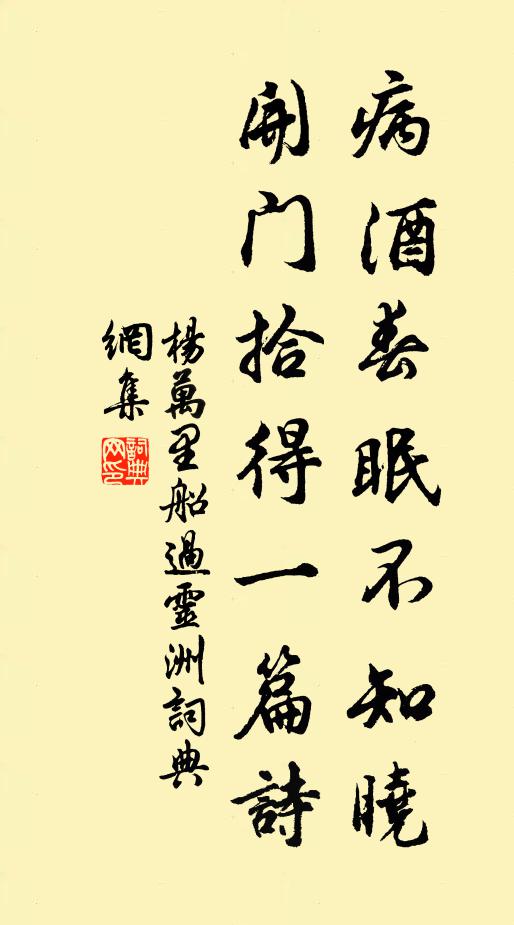 病酒春眠不知曉
開門拾得一篇詩
楊萬里船過靈洲詞典
網集
詞典網印